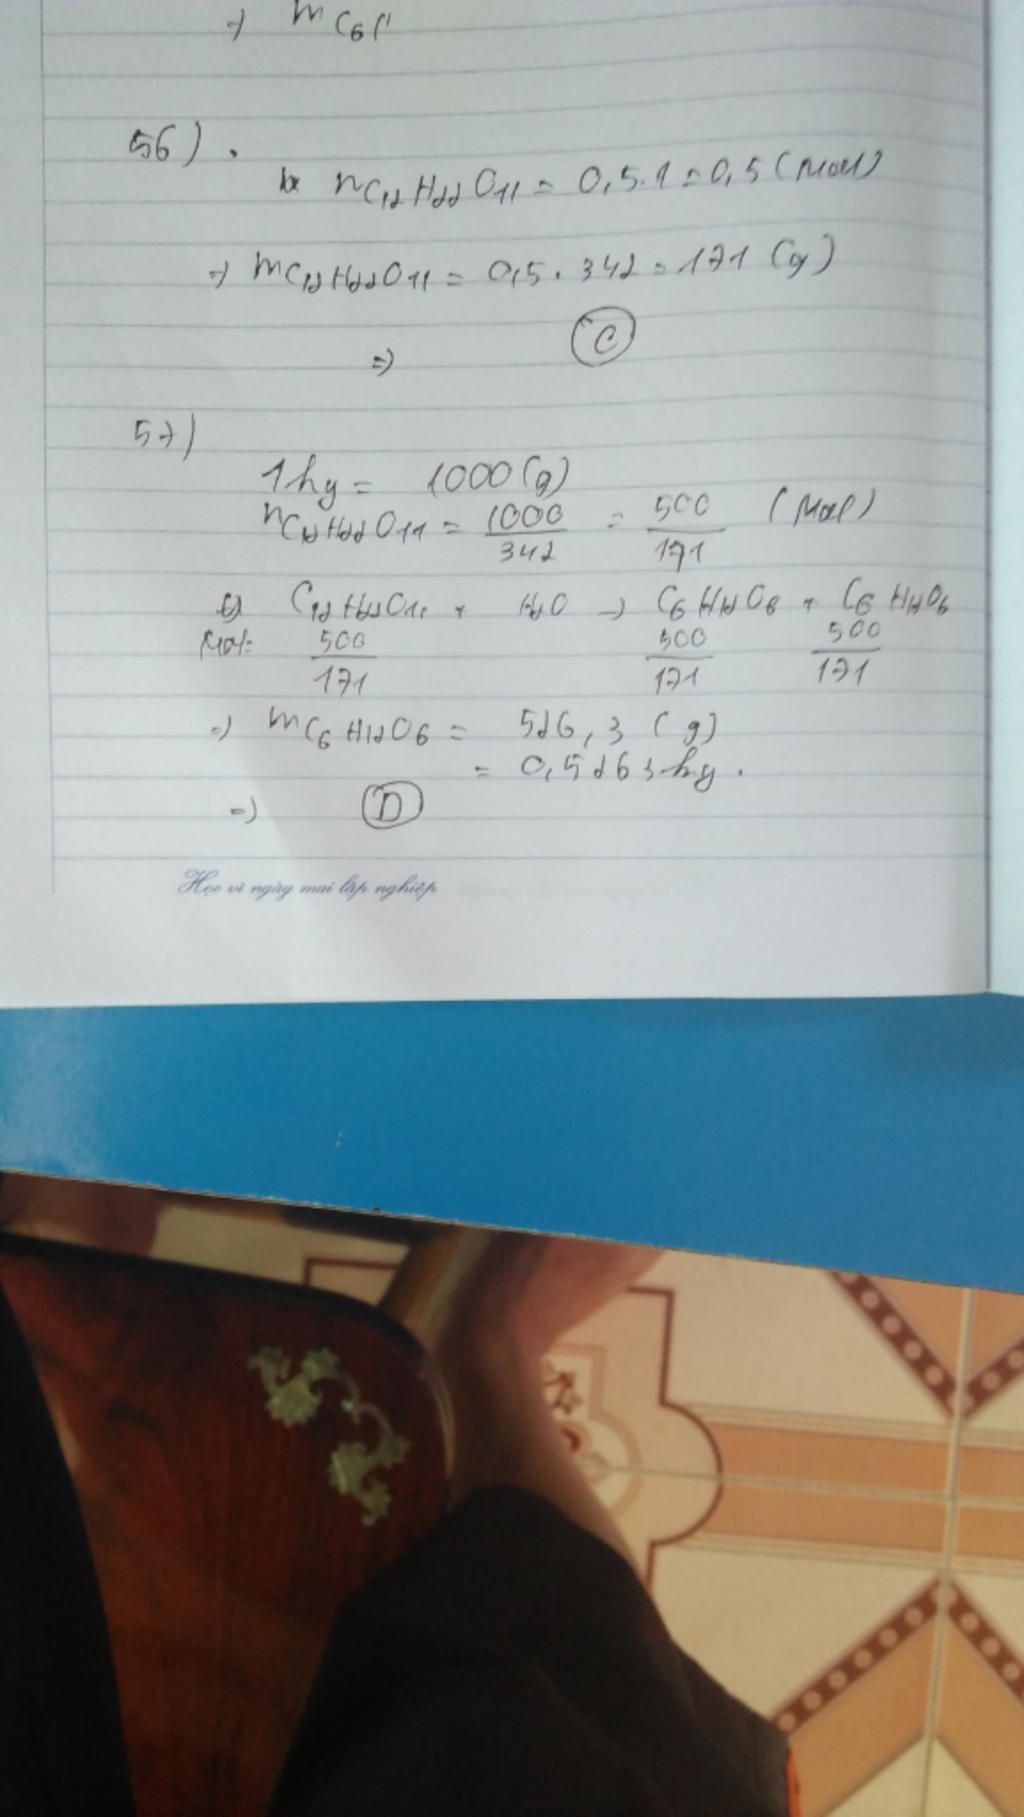 =) mC6
56).
nC12H22O11 = 0,5.1 = 0,5 (Mol)
=) mC12H22O11 = 0,5.342 = 171 (g)
=) C
57)
1kg = 1000(g)
nC12H22O11 = 1000/342 = 500/171 (Mol)
C12H22O11 + H2O -> C6H12O6 + C6H12O6
Mol: 500/171 500/171 500/171
=) mC6H12O6 = 526,3 (g)
= 0,5263 kg.
=) D
Học vì ngày mai lập nghiệp